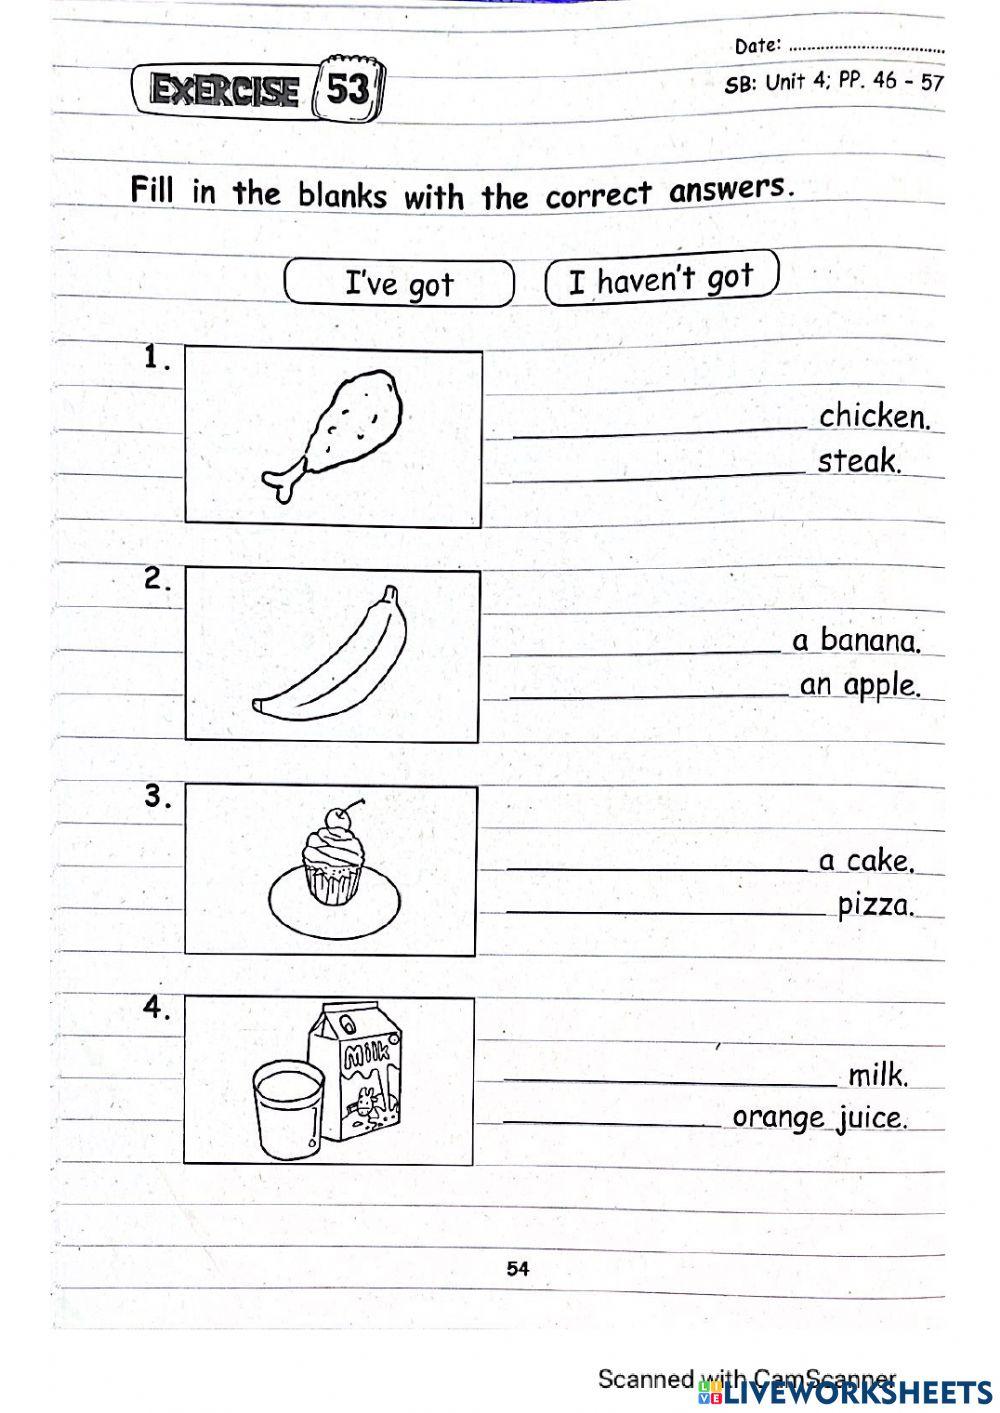 Date: ................................
EXERCISE 53
SB: Unit 4; PP. 46 - 57
Fill in the blanks with the correct answers.
I've got
I haven't got
1.
____________________ chicken.
____________________ steak.
2.
____________________ a banana.
____________________ an apple.
3.
____________________ a cake.
____________________ pizza.
4.
Milk
____________________ milk.
____________________ orange juice.
54
Scanned with CamScanner
LIVE LIVEWORKSHEETS